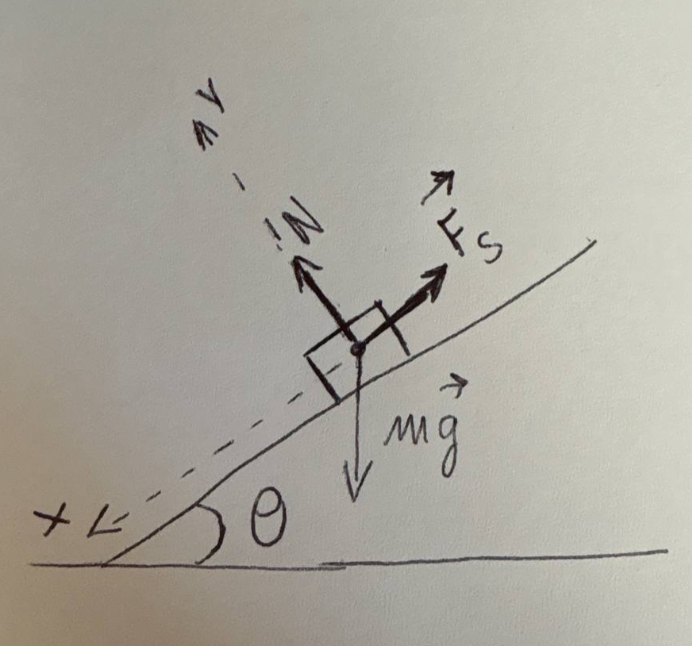 Y
N
F⃗s
mg⃗
X
θ